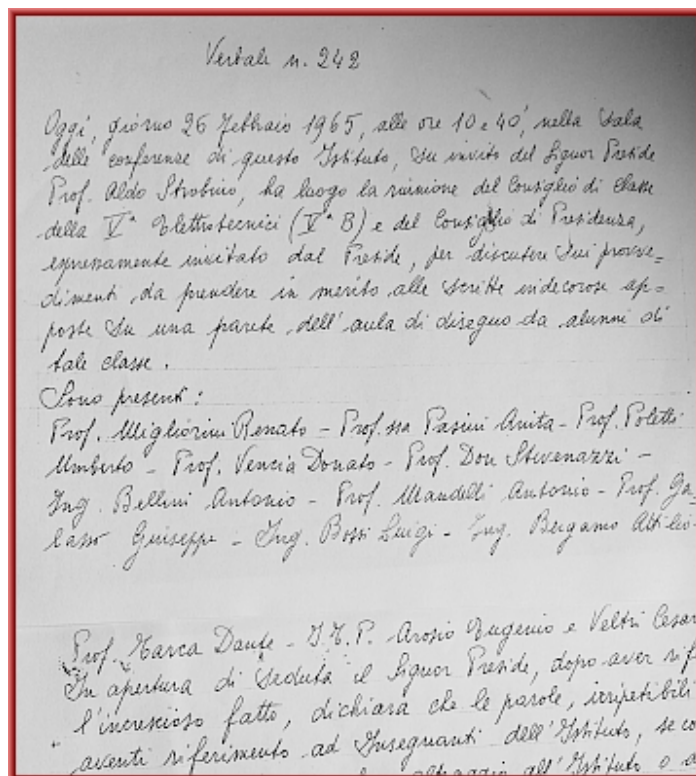 Verbale n. 242
Oggi, giorno 26 Febbraio 1965, alle ore 10 e 40', nella Sala
delle conferenze di questo Istituto, su invito del Signor Preside
Prof. Aldo Strobino, ha luogo la riunione del Consiglio di Classe
della Vª Elettrotecnici (Vª B) e del Consiglio di Presidenza,
espressamente invitato dal Preside, per discutere sui provve=
dimenti da prendere in merito alle scritte indecorose ap=
poste su una parete dell'aula di disegno da alunni di
tale classe.
Sono presenti:
Prof. Migliorini Renato - Prof.ssa Pasini Anita - Prof. Poletti
Umberto - Prof. Vencia Donato - Prof. Don Stevenazzi -
Ing. Bellini Antonio - Prof. Mandelli Antonio - Prof. Ga
lasso Giuseppe - Ing. Bossi Luigi - Ing. Bergamo Attilio -
Prof. Marca Dante - I.T.P. Arosio Eugenio e Veltri Cesar
In apertura di seduta il Signor Preside, dopo aver rif
l'increscioso fatto, dichiara che le parole, irripetibili
aventi riferimento ad Insegnanti dell'Istituto, se co
oltraggio all'Istituto o